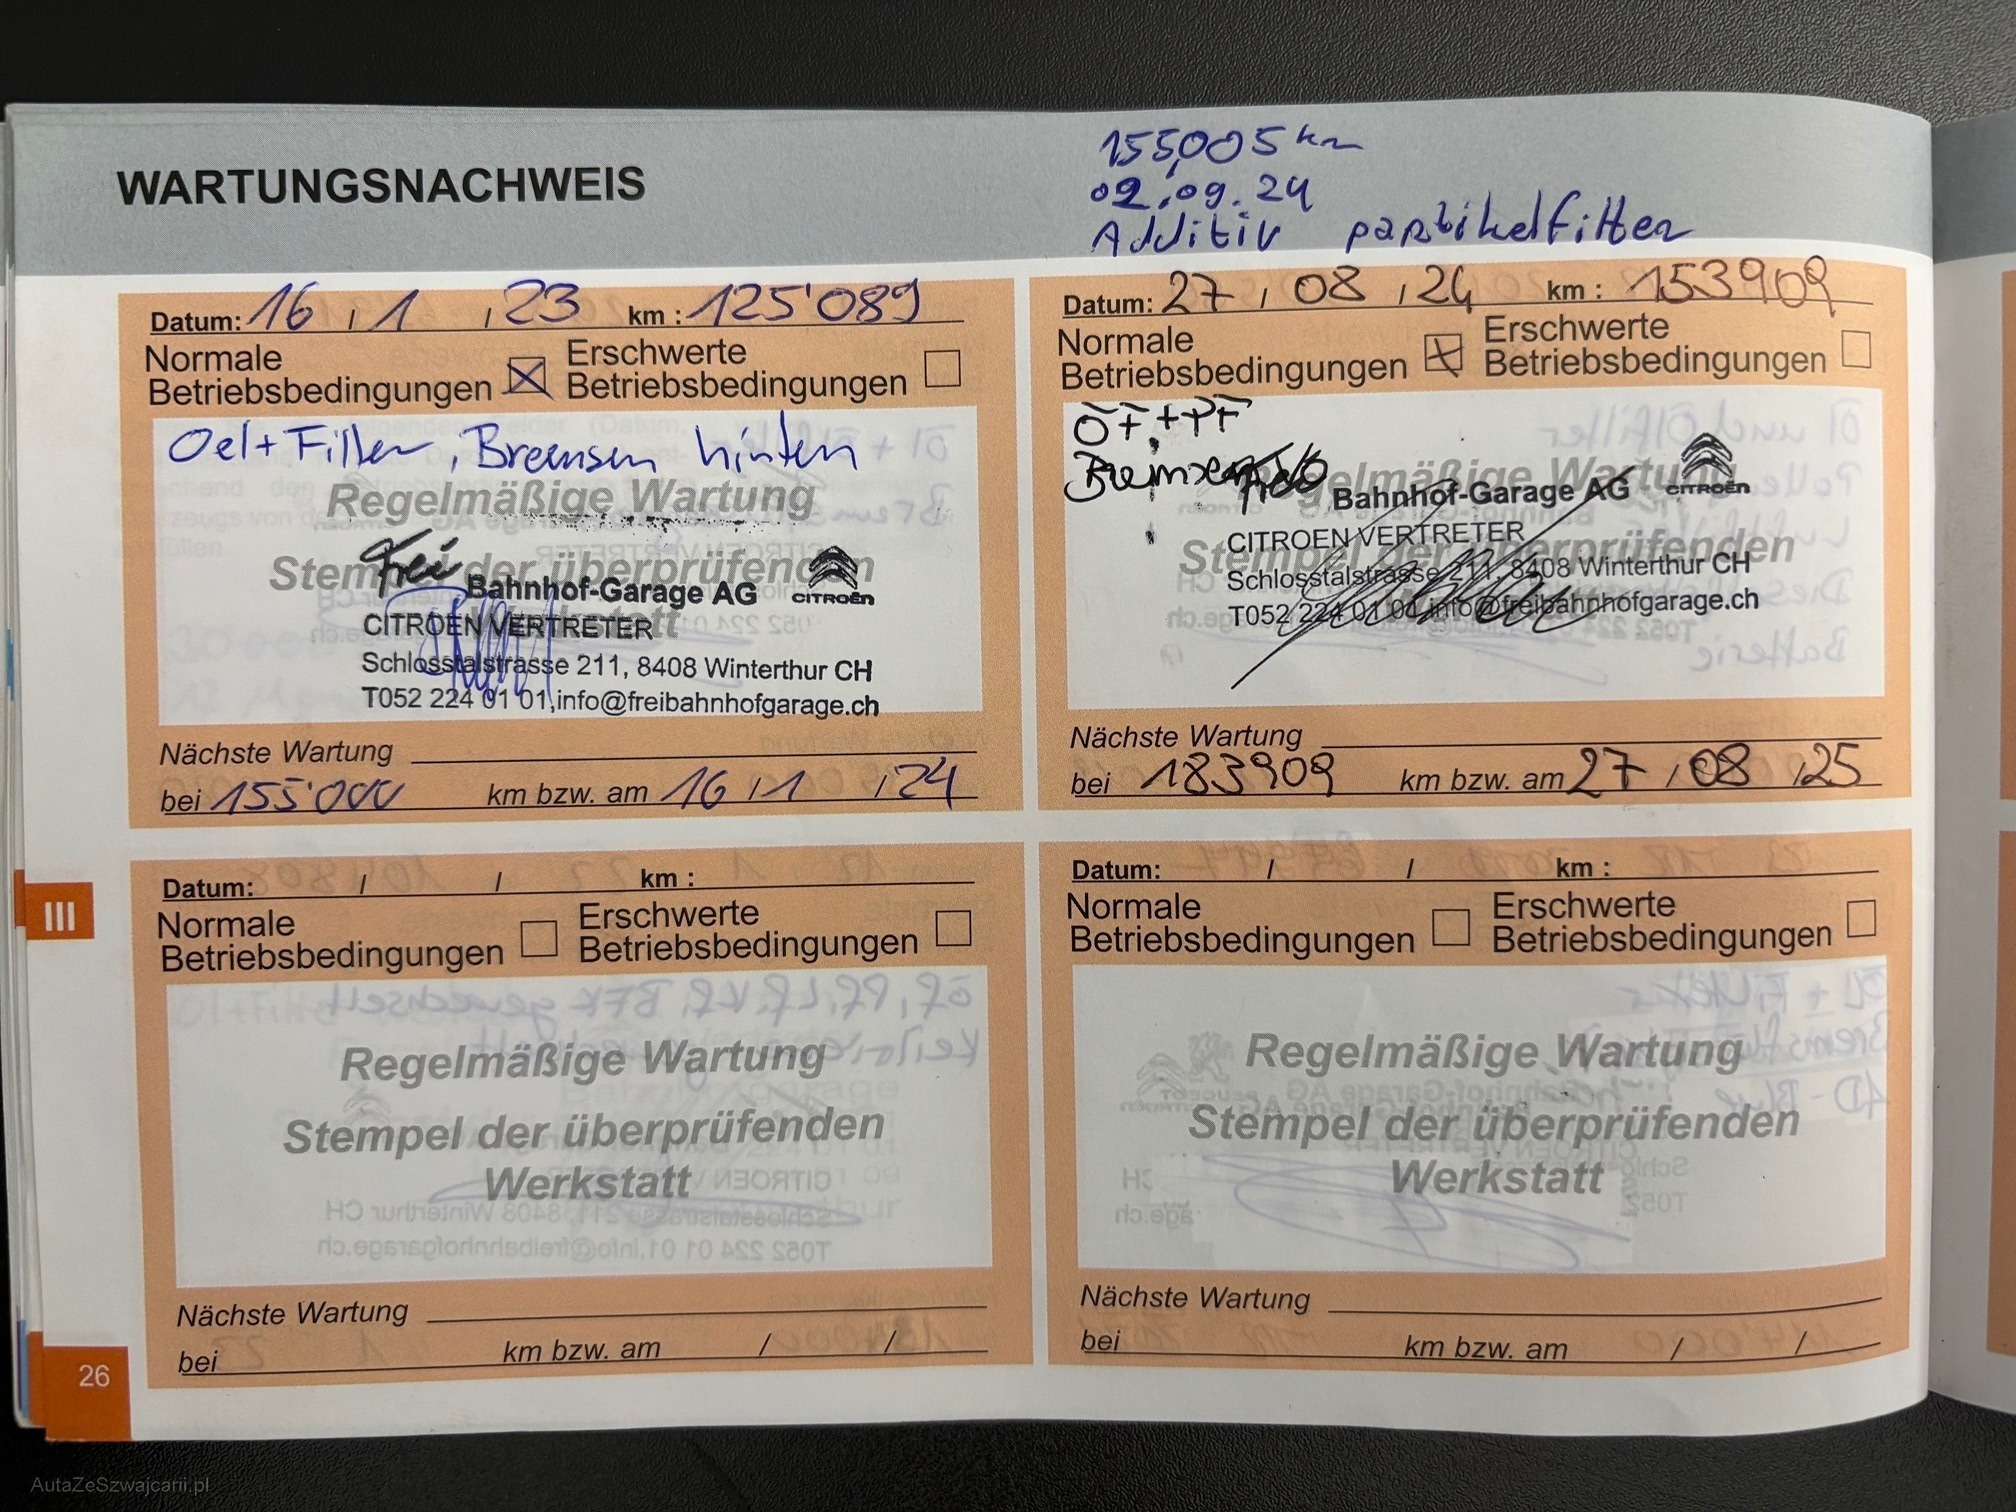 WARTUNGSNACHWEIS
155,005 km
02.09.24
Additiv partikelfilter
Datum: 16 / 1 / 23 km : 125'089
Normale Betriebsbedingungen ☒ Erschwerte Betriebsbedingungen ☐
Oel + Filter, Bremsen hinten
Regelmäßige Wartung
Stempel der überprüfenden
Werkstatt
Frei Bahnhof-Garage AG CITROËN
CITROEN VERTRETER
Schlosstalstrasse 211, 8408 Winterthur CH
T052 224 01 01,info@freibahnhofgarage.ch
Nächste Wartung
bei 155'000 km bzw. am 16 / 1 / 24
Datum: 27 / 08 / 24 km : 153909
Normale Betriebsbedingungen ☒ Erschwerte Betriebsbedingungen ☐
ÖF, + PF
Bremsen
Regelmäßige Wartung
Bahnhof-Garage AG CITROËN
CITROEN VERTRETER
Stempel der überprüfenden
Schlosstalstrasse 211, 8408 Winterthur CH
T052 224 01 01,info@freibahnhofgarage.ch
Nächste Wartung
bei 183909 km bzw. am 27 / 08 / 25
Datum: / / km :
Normale Betriebsbedingungen ☐ Erschwerte Betriebsbedingungen ☐
Regelmäßige Wartung
Stempel der überprüfenden
Werkstatt
Nächste Wartung
bei km bzw. am / /
Datum: / / km :
Normale Betriebsbedingungen ☐ Erschwerte Betriebsbedingungen ☐
Regelmäßige Wartung
Stempel der überprüfenden
Werkstatt
Nächste Wartung
bei km bzw. am / /
III
26
AutaZeSzwajcarii.pl